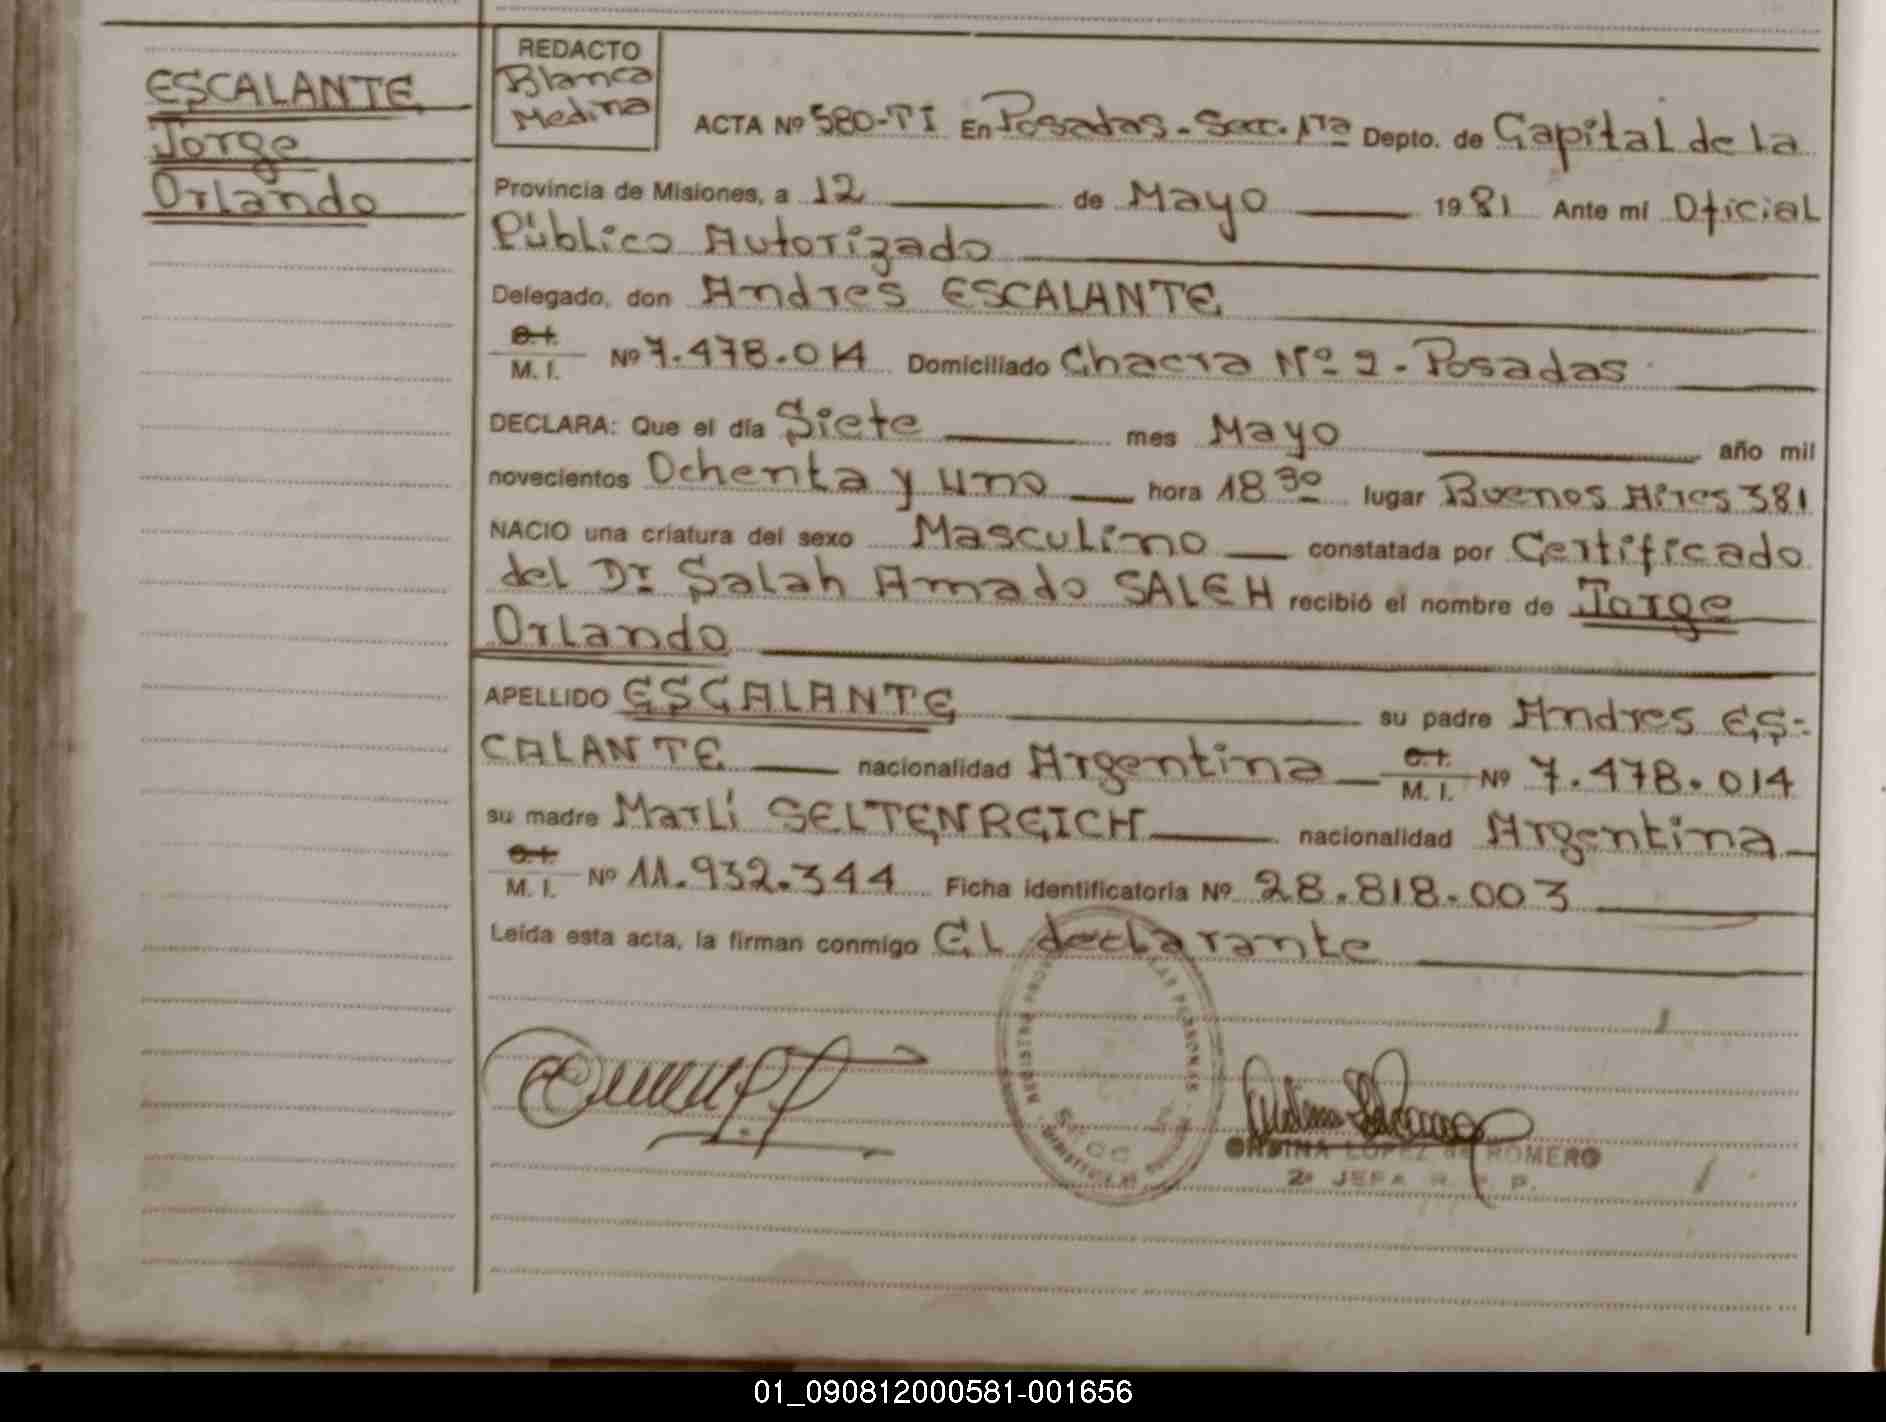 ESCALANTE
Jorge
Orlando
REDACTO
Blanca
Medina
ACTA Nº 580-TI En Posadas - Secc. 1ra Depto. de Capital de la
Provincia de Misiones, a 12 de Mayo 1981 Ante mi Oficial
Público Autorizado
Delegado, don Andres ESCALANTE
C.I.
M. I. Nº 7.478.014 Domiciliado Chacra Nº 2 - Posadas
DECLARA: Que el día Siete mes Mayo año mil
novecientos Ochenta y uno hora 18 30 lugar Buenos Aires 381
NACIO una criatura del sexo Masculino constatada por Certificado
del Dr Salah Amado SALEH recibió el nombre de Jorge
Orlando
APELLIDO ESCALANTE su padre Andres ES-
CALANTE nacionalidad Argentina C.I. M. I. Nº 7.478.014
su madre Marlí SELTENREICH nacionalidad Argentina
C.I.
M. I. Nº 11.932.344 Ficha identificatoria Nº 28.818.003
Leída esta acta, la firman conmigo El declarante
REGISTRO PROV. LAS PERSONAS
ONDINA LOPEZ de ROMERO
2º JEFA R. P. P.
01_090812000581-001656